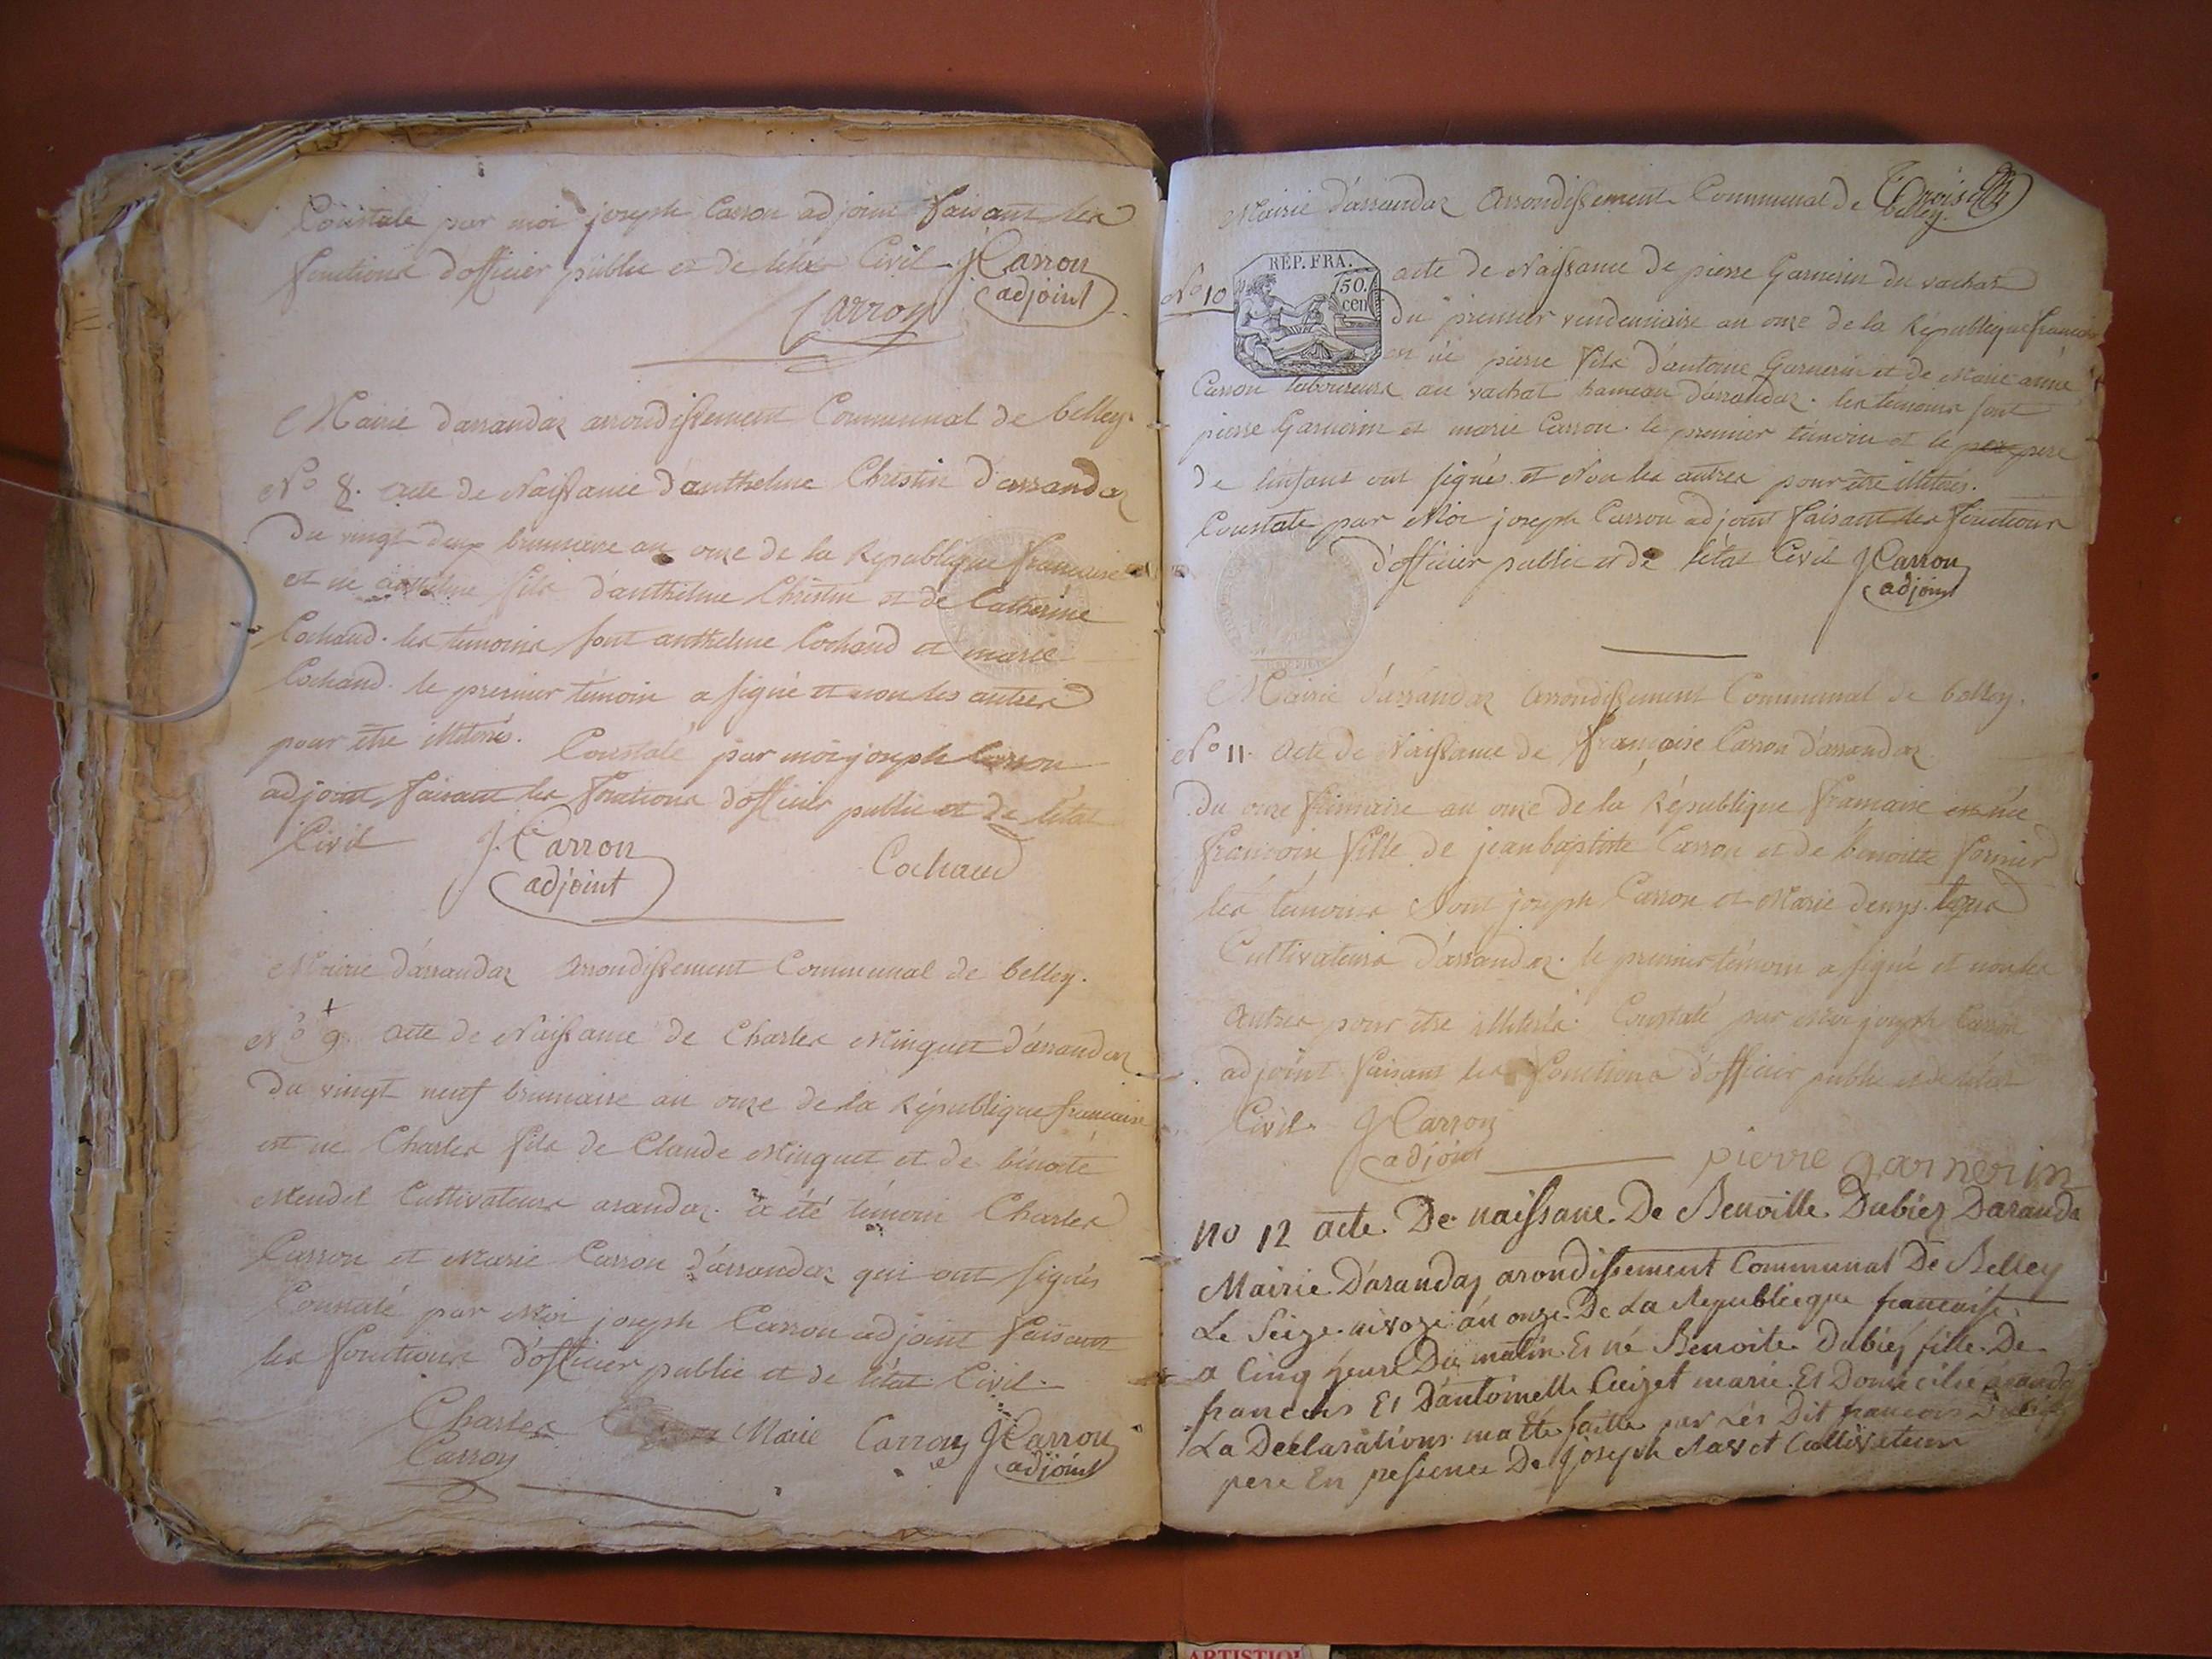 Constate par moi joseph Carron adjoint faisant les
fonctions d'officier public et de l'état Civil J. Carron
adjoint
Carron
Mairie d'arrandaz arrondissement Communal de belley.
N° 8. acte de Naissance d'anthelme Christin d'arrandaz
Du vingt deux brumaire an onze de la République francaise
est né anthelme fils d'anthelme Christin et de Catherine
Cochand. les temoins sont anthelme Cochand et marie
Cochand. le premier témoin a signé et non les autres
pour être illiterés. Constaté par moi joseph Carron
adjoint, faisant les fonctions d'officier public et de l'état
Civil J. Carron Cochand
adjoint
Mairie d'arrandaz arrondissement Communal de belley.
N° 9. acte de Naissance de Charles Minguet d'arrandaz
Du vingt neuf brumaire an onze de la République francaise
est né Charles fils de Claude Minguet et de bénoite
Mendet Cultivateurs arandaz. a été témoin Charles
Carron et Marie Carron d'arrandaz qui ont signés
Constaté par Moi joseph Carron adjoint faisant
les fonctions d'officier public et de l'état Civil.
Charles Marie Carron J. Carron
Carron adjoint
Mairie d'arrandaz Arrondissement Communal de
belley.
RÉP. FRA.
50.
cen
N° 10
acte de Naissance de pierre Garnerin du vachat
Du premier vendemiaire an onze de la République francaise
est né pierre fils d'antoine Garnerin et de Marie anne
Carron laboureurs au vachat hameau d'arrandaz. les témoins sont
pierre Garnerin et marie Carron. le premier témoin et le pere
de l'enfant ont signés et Non les autres pour être illiterés.
Constaté par Moi joseph Carron adjoint faisant les fonctions
d'officier public et de l'état Civil J Carron
adjoint
Mairie d'arrandaz Arrondissement Communal de belley.
N° 11. Acte de Naissance de françoise Carron d'arrandaz
Du onze frimaire an onze de la République francaise est née
francoise fille de jean baptiste Carron et de benoitte
les témoins sont joseph Carron et Marie denys. tous
Cultivateurs d'arrandaz. le premier témoin a signé et non les
Autres pour être illiterés. Constaté par Moi joseph Carron
adjoint faisant les fonctions d'officier public et de l'état
Civil. J Carron
adjoint
pierre garnerin
no 12 acte. De naissane. De Benoitte. Dubiez Daranda
Mairie. D'arandaz arondissement Communal De Belley
Le Seize. nivoze an onze. De La Republicque francaise.
a Cinq heure Du matin. Et né Benoite. Dubiez fille. De
francois Et D'antoinette Cuizet marié. Et Domicilié
La Declarations matte faitte par Les Dit francois
pere En pressence De Joseph Cultivateur